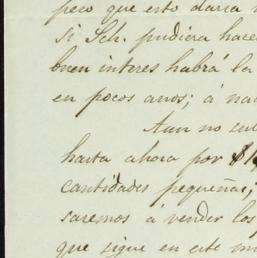 peco que esto daria
Si Sch. pudiera hace
buen interes habrá la
en pocos anos; á na
Aun no
hasta ahora por $1
cantidades pequeñas;
saremos á vender los
que sigue en este